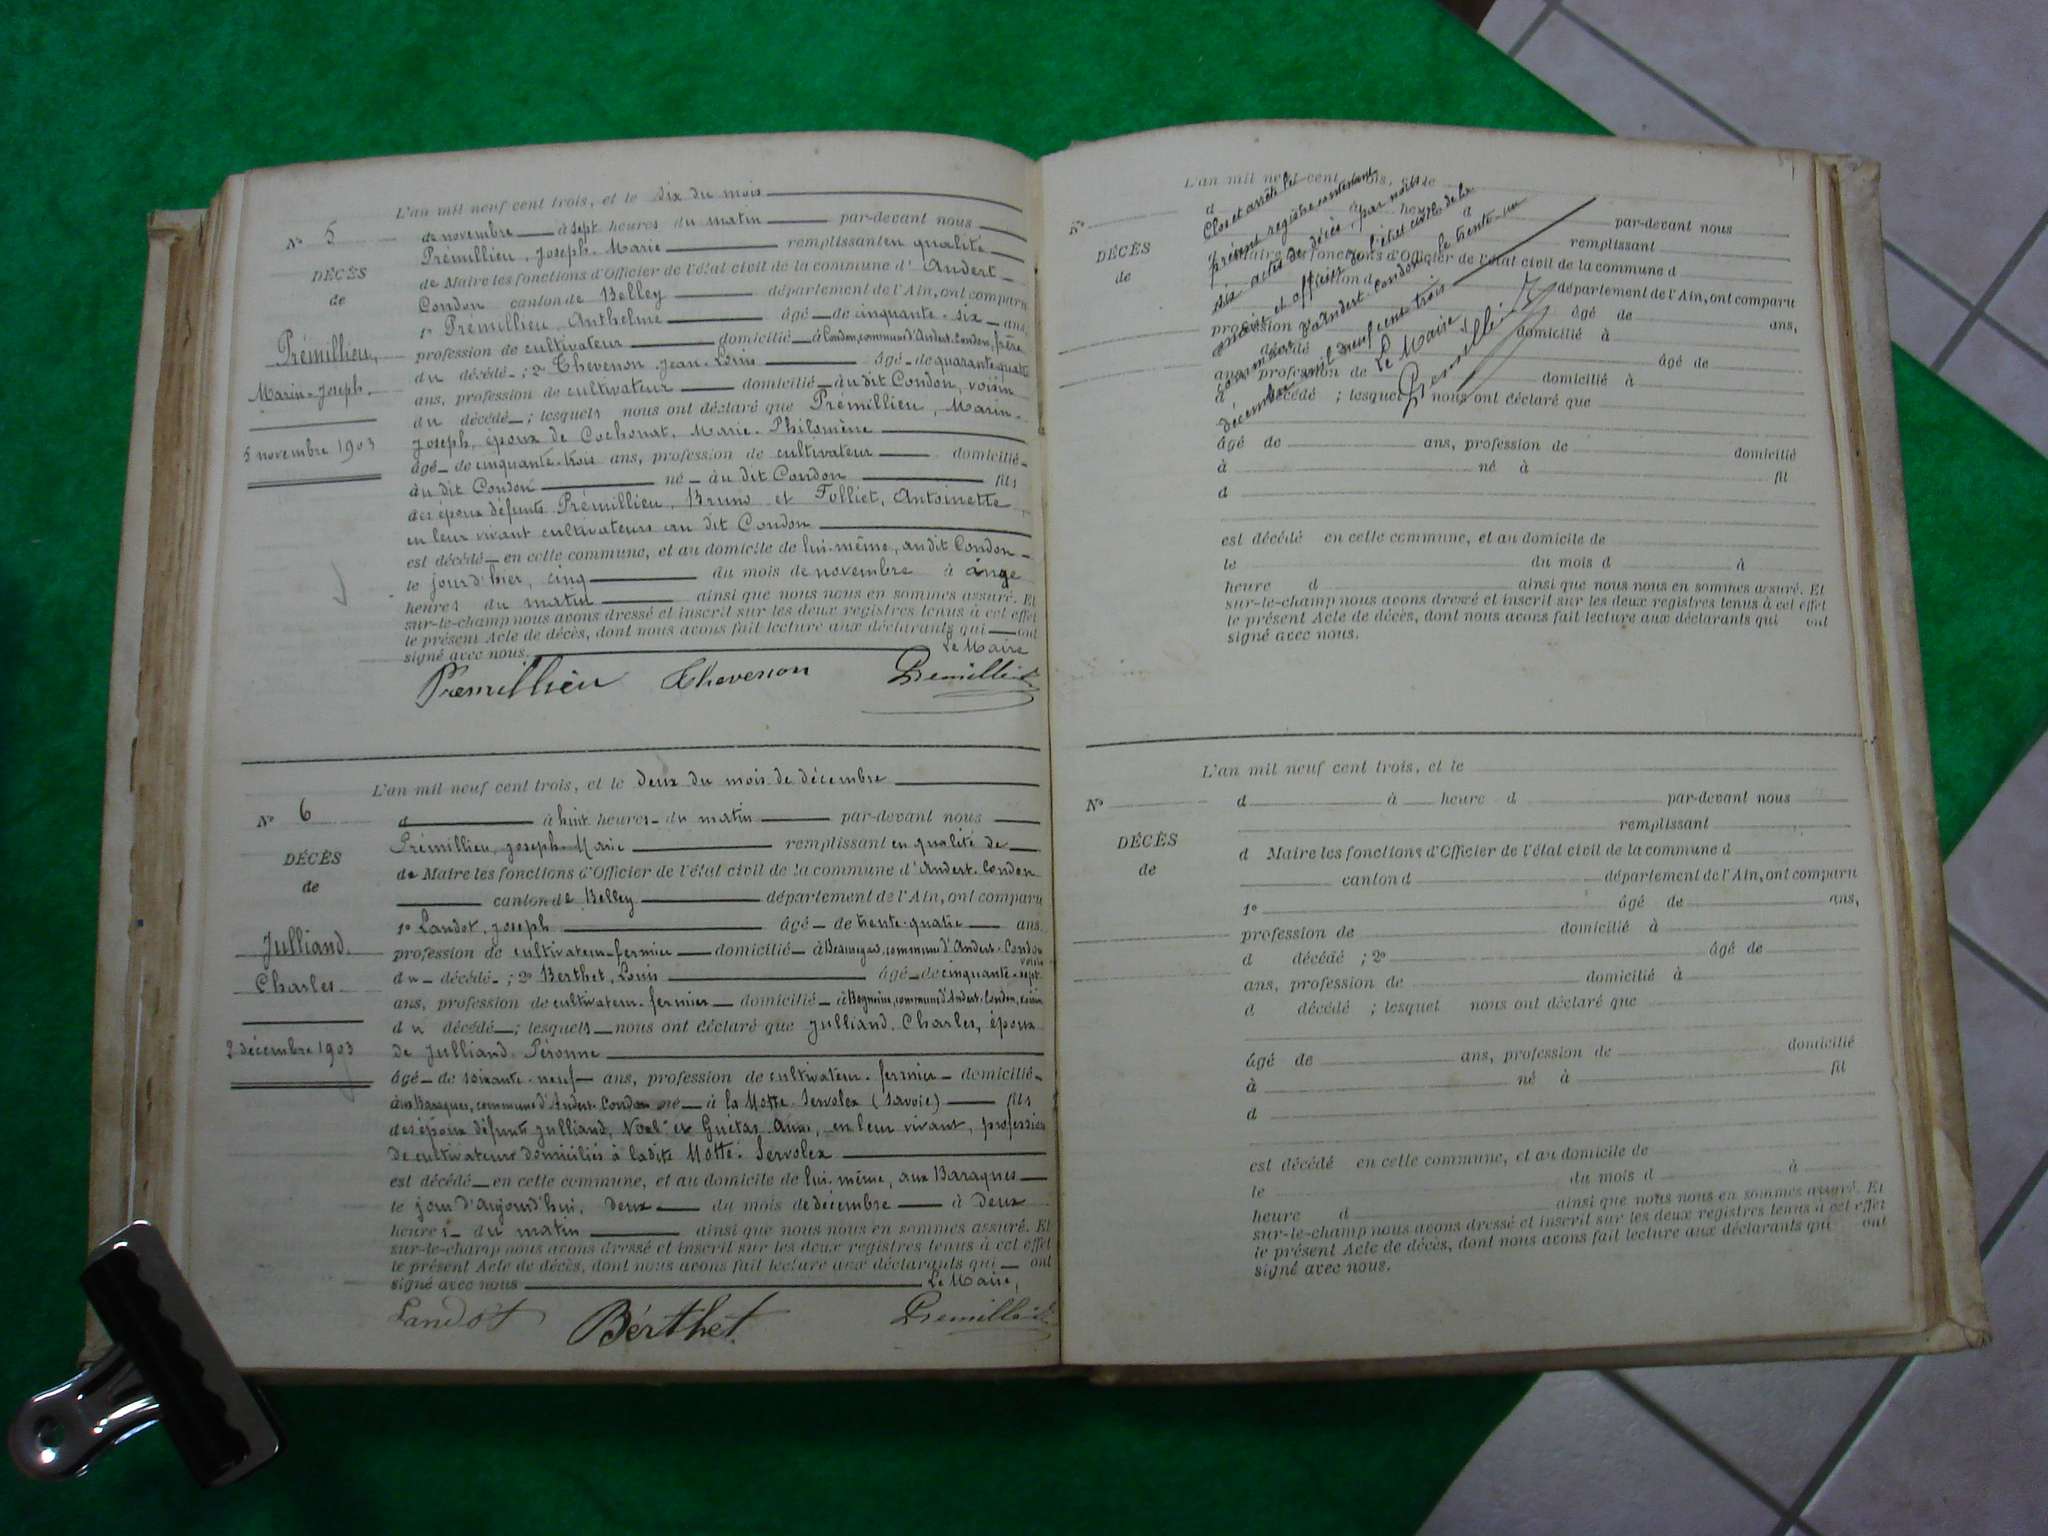 L'an mil neuf cent trois, et le six du mois
N° 5
de novembre à sept heures du matin par-devant nous
Prémillieu, Joseph-Marie remplissant en qualité
DÉCÈS
de Maire les fonctions d'Officier de l'état civil de la commune d'Andert-
de
Condon canton de Belley département de l'Ain, ont comparu
1° Prémillieu, Anthelme âgé de cinquante-six ans,
Prémillieu,
profession de cultivateur domicilié à Condon, commune d'Andert-Condon, frère
du décédé ; 2° Thevenon Jean-Louis âgé de quarante-quatre
Marin-Joseph.
ans, profession de cultivateur domicilié au dit Condon, voisin
du décédé ; lesquels nous ont déclaré que Prémillieu, Marin-
5 novembre 1903
Joseph, époux de Cochonat, Marie-Philomène
âgé de cinquante-trois ans, profession de cultivateur domicilié
au dit Condon né au dit Condon fils
des époux défunts Prémillieu, Bruno et Folliet, Antoinette
en leur vivant cultivateurs au dit Condon
est décédé en cette commune, et au domicile de lui-même, au dit Condon
le jour d'hier, cinq du mois de novembre à
heures du matin ainsi que nous nous en sommes assuré. Et
sur-le-champ nous avons dressé et inscrit sur les deux registres tenus à cet effet
le présent Acte de décès, dont nous avons fait lecture aux déclarants qui ont
signé avec nous. Le Maire
Prémillieu Thevenon Prémillieu
L'an mil neuf cent trois, et le deux du mois de décembre
N° 6
d à huit heures du matin par-devant nous
Prémillieu, Joseph-Marie remplissant en qualité de
DÉCÈS
de Maire les fonctions d'Officier de l'état civil de la commune d'Andert-Condon
de
canton de Belley département de l'Ain, ont comparu
1° Landot, Joseph âgé de trente-quatre ans,
Julliand,
profession de cultivateur-fermier domicilié à Beauregard, commune d'Andert-Condon
voisin
du décédé ; 2° Berthet, Louis âgé de cinquante-sept
Charles
ans, profession de cultivateur-fermier domicilié à commune d'Andert-Condon, voisin
du décédé ; lesquels nous ont déclaré que Julliand, Charles, époux
2 décembre 1903
de Julliand Péronne
âgé de soixante-neuf ans, profession de cultivateur-fermier domicilié
aux Baraques, commune d'Andert-Condon né à la Motte-Servolex (Savoie) fils
des époux défunts Julliand, Noël et Guétas en leur vivant, profession
de cultivateurs domiciliés à ladite Motte-Servolex
est décédé en cette commune, et au domicile de lui-même, aux Baraques
le jour d'aujourd'hui, deux du mois de décembre à deux
heures du matin ainsi que nous nous en sommes assuré. Et
sur-le-champ nous avons dressé et inscrit sur les deux registres tenus à cet effet
le présent Acte de décès, dont nous avons fait lecture aux déclarants qui ont
signé avec nous Le Maire,
Landot Berthet Prémillieu
L'an mil neuf cent trois, et le
N° d à heure d par-devant nous
remplissant
DÉCÈS
d Maire les fonctions d'Officier de l'état civil de la commune d
de
canton d département de l'Ain, ont comparu
âgé de ans,
profession de domicilié à
d décédé âgé de
ans, profession de domicilié à
d décédé ; lesquel nous ont déclaré que
Clos et arrêté le
présent registre contenant
six actes de décès, par nous
maire et officier de l'état civil de la
commune d'Andert-Condon, le trente-un
décembre mil neuf cent trois
Le Maire
Prémillieu
âgé de ans, profession de domicilié
à né à fil
d
est décédé en cette commune, et au domicile de
le du mois d à
heure d ainsi que nous nous en sommes assuré. Et
sur-le-champ nous avons dressé et inscrit sur les deux registres tenus à cet effet
le présent Acte de décès, dont nous avons fait lecture aux déclarants qui ont
signé avec nous.
L'an mil neuf cent trois, et le
N° d à heure d par-devant nous
remplissant
DÉCÈS
d Maire les fonctions d'Officier de l'état civil de la commune d
de
canton d département de l'Ain, ont comparu
1° âgé de ans,
profession de domicilié à
d décédé ; 2° âgé de
ans, profession de domicilié à
d décédé ; lesquel nous ont déclaré que
âgé de ans, profession de domicilié
à né à fil
d
est décédé en cette commune, et au domicile de
le du mois d à
heure d ainsi que nous nous en sommes assuré. Et
sur-le-champ nous avons dressé et inscrit sur les deux registres tenus à cet effet
le présent Acte de décès, dont nous avons fait lecture aux déclarants qui ont
signé avec nous.